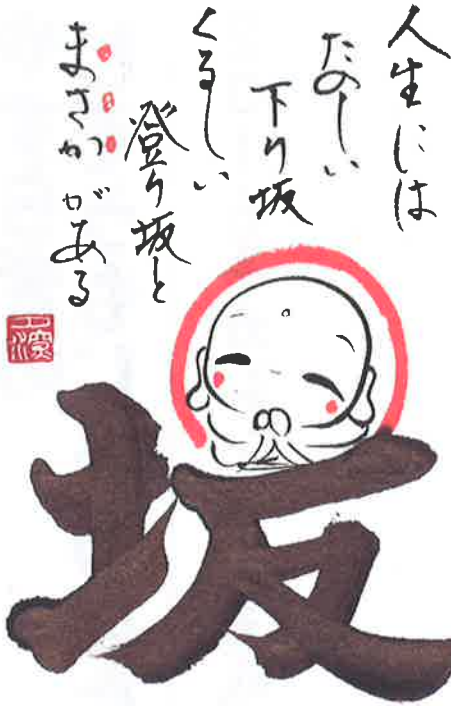 人生には
たのしい
下り坂
くるしい
登り坂と
まさかがある
坂